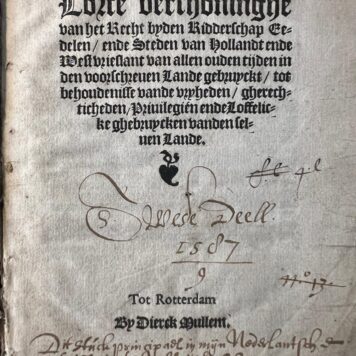 Corte verthoninghe
van het Recht byden Ridderschap Ee-
delen / ende Steden van Hollandt ende
Westvrieslant van allen ouden tijden in
den voorschreuen Lande gebruyckt / tot
behoudenisse vande vryheden / gherech-
ticheden / Priuilegiën ende Loffelic-
ke ghebruycken vanden sel-
uen Lande.
Twede Deell
1587
9
Tot Rotterdam
By Dierck Mullem.
Dit stuck principael in mijn Nederlantsch